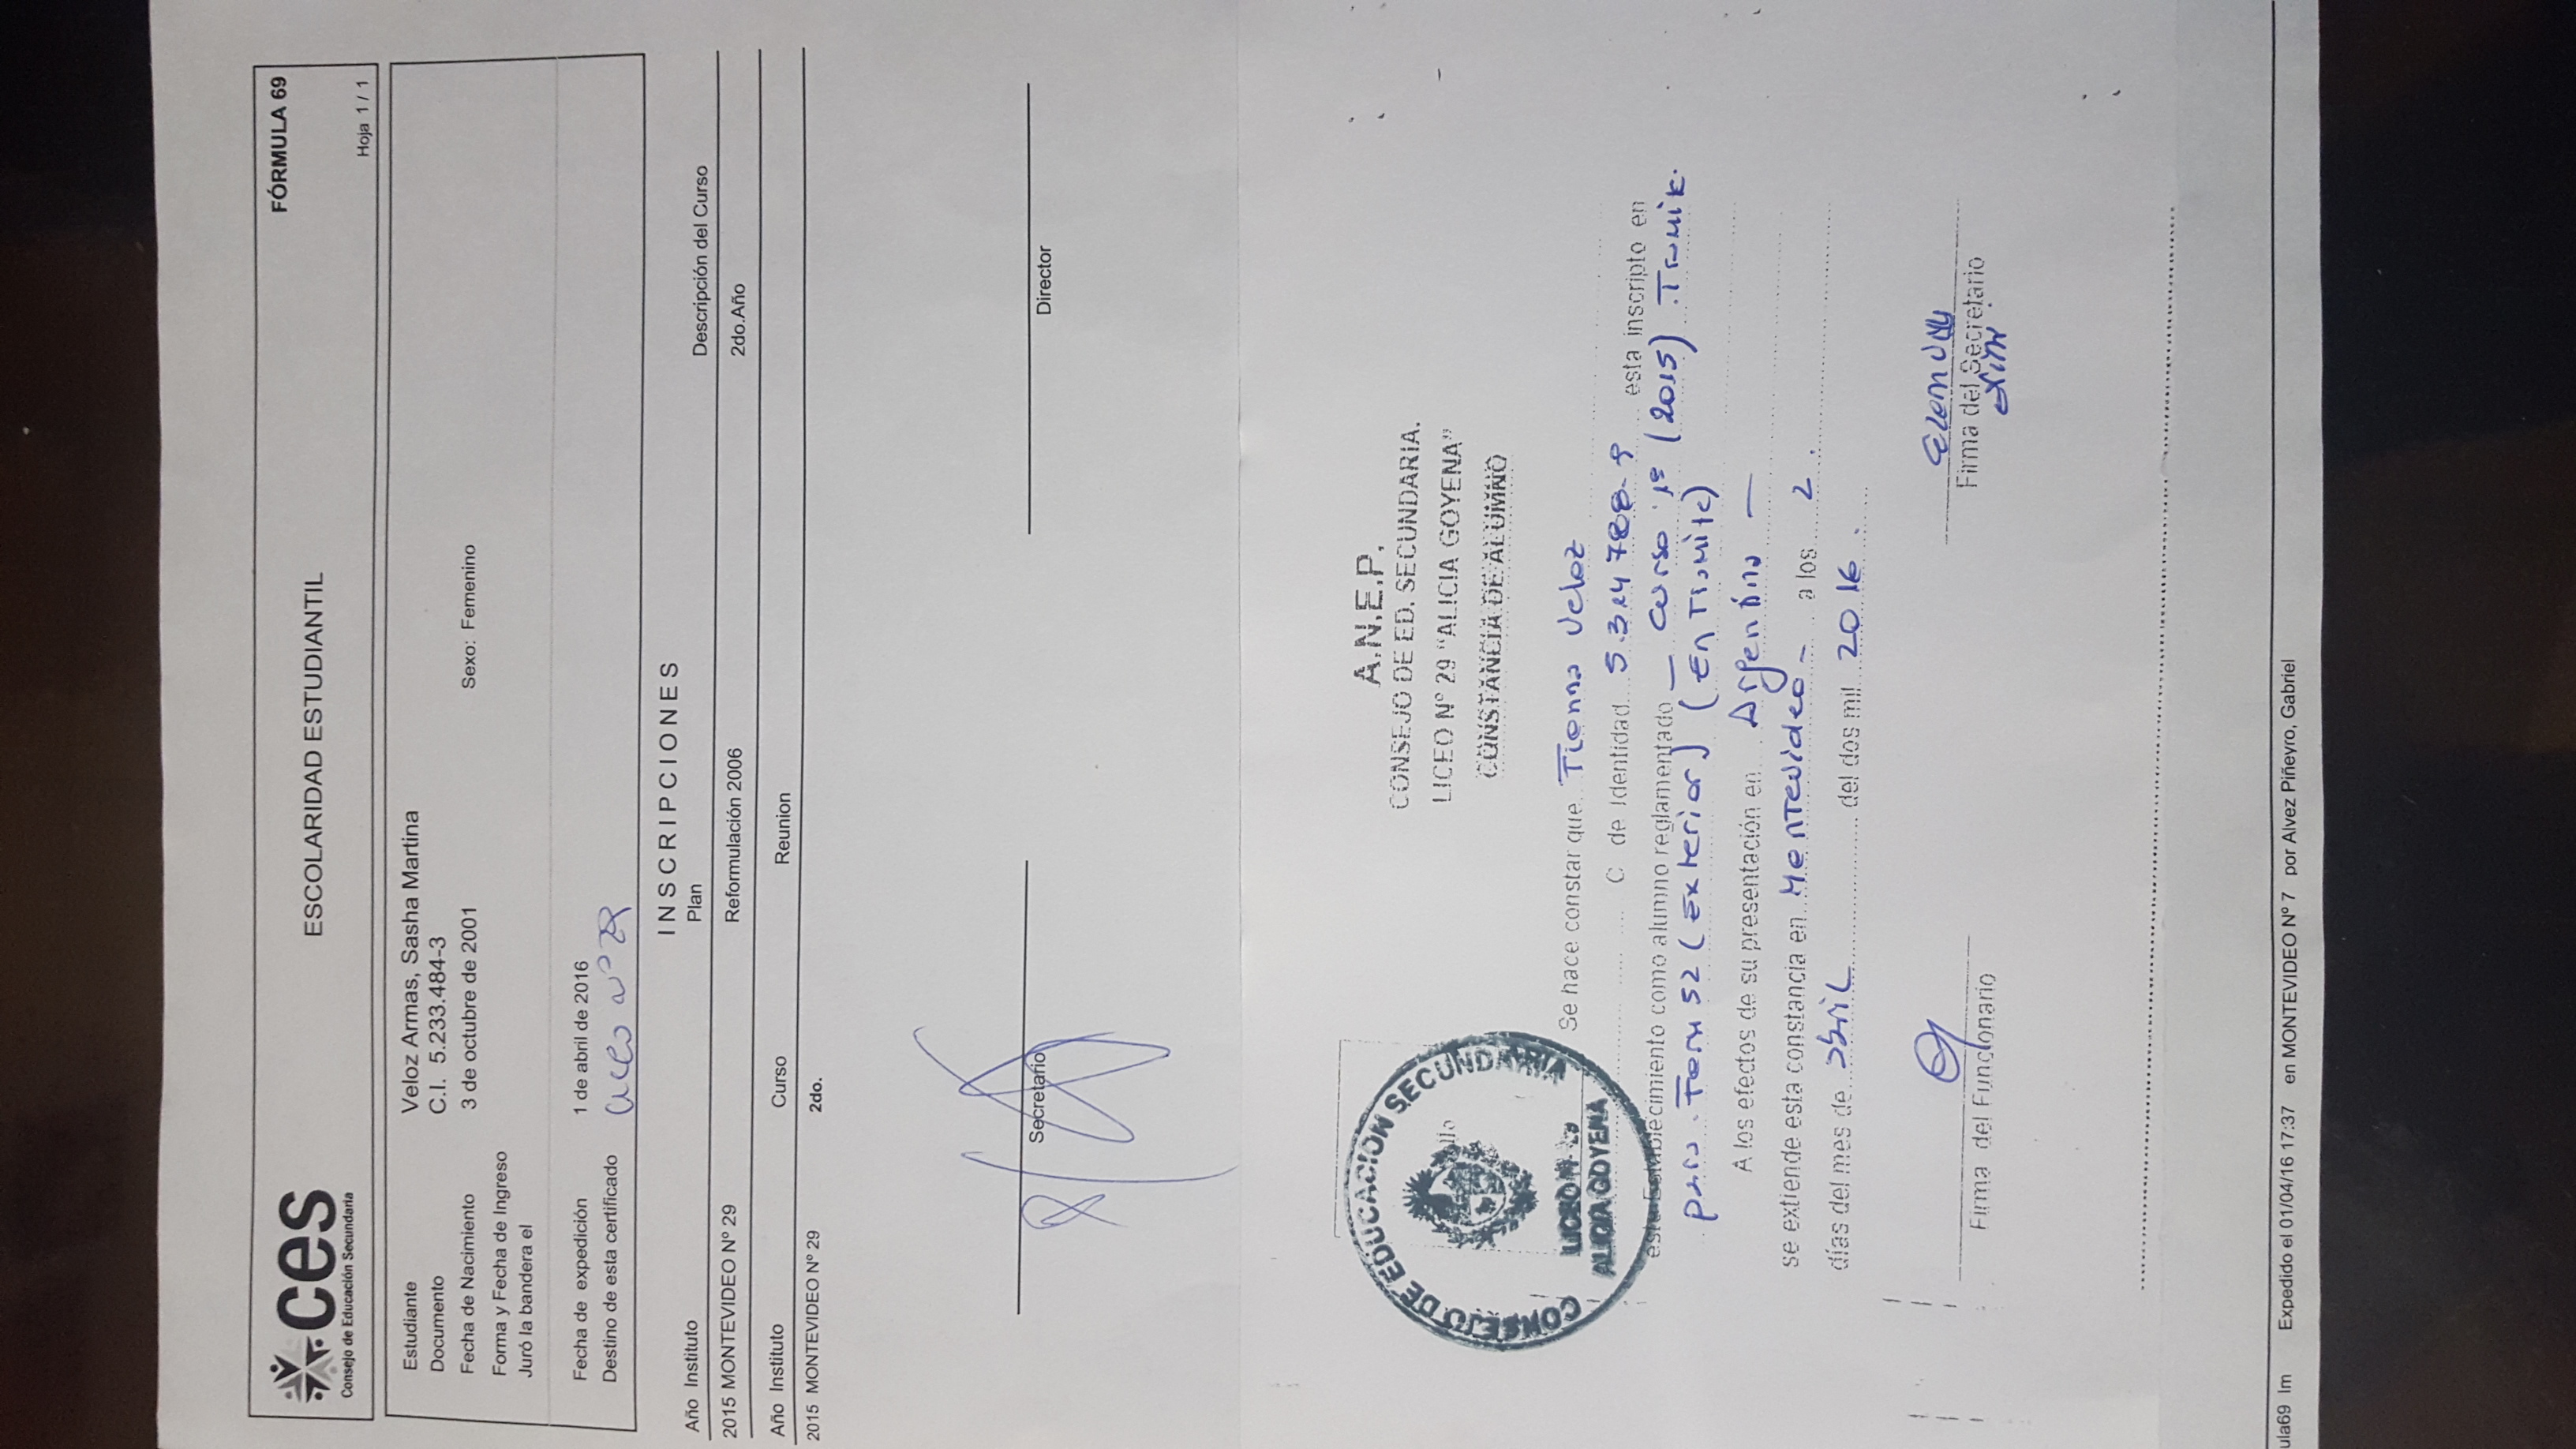 ces
Consejo de Educación Secundaria
ESCOLARIDAD ESTUDIANTIL
FÓRMULA 69
Hoja 1 / 1
Estudiante Veloz Armas, Sasha Martina
Documento C.I. 5.233.484-3
Fecha de Nacimiento 3 de octubre de 2001 Sexo: Femenino
Forma y Fecha de Ingreso
Juró la bandera el
Fecha de expedición 1 de abril de 2016
Destino de esta certificado Liceo Nº 29
INSCRIPCIONES
Año Instituto Plan Descripción del Curso
2015 MONTEVIDEO Nº 29 Reformulación 2006 2do.Año
Año Instituto Curso Reunion
2015 MONTEVIDEO Nº 29 2do.
Secretario Director
CONSEJO DE EDUCACIÓN SECUNDARIA
LICEO Nº 29
ALICIA GOYENA
A.N.E.P.
CONSEJO DE ED. SECUNDARIA.
LICEO Nº 29 "ALICIA GOYENA"
CONSTANCIA DE ALUMNO
Se hace constar que Tionna Veloz
C de Identidad 5.314788-9 esta inscripto en
este Establecimiento como alumno reglamentado — Curso 1º (2015) Tramite
para Form 52 (Exterior) (En Tramite)
A los efectos de su presentación en Argentina —
se extiende esta constancia en Montevideo - a los 2.
días del mes de abril del dos mil 2016.
Firma del Funcionario Firma del Secretario
ula69 Im Expedido el 01/04/16 17:37 en MONTEVIDEO Nº 7 por Alvez Piñeyro, Gabriel